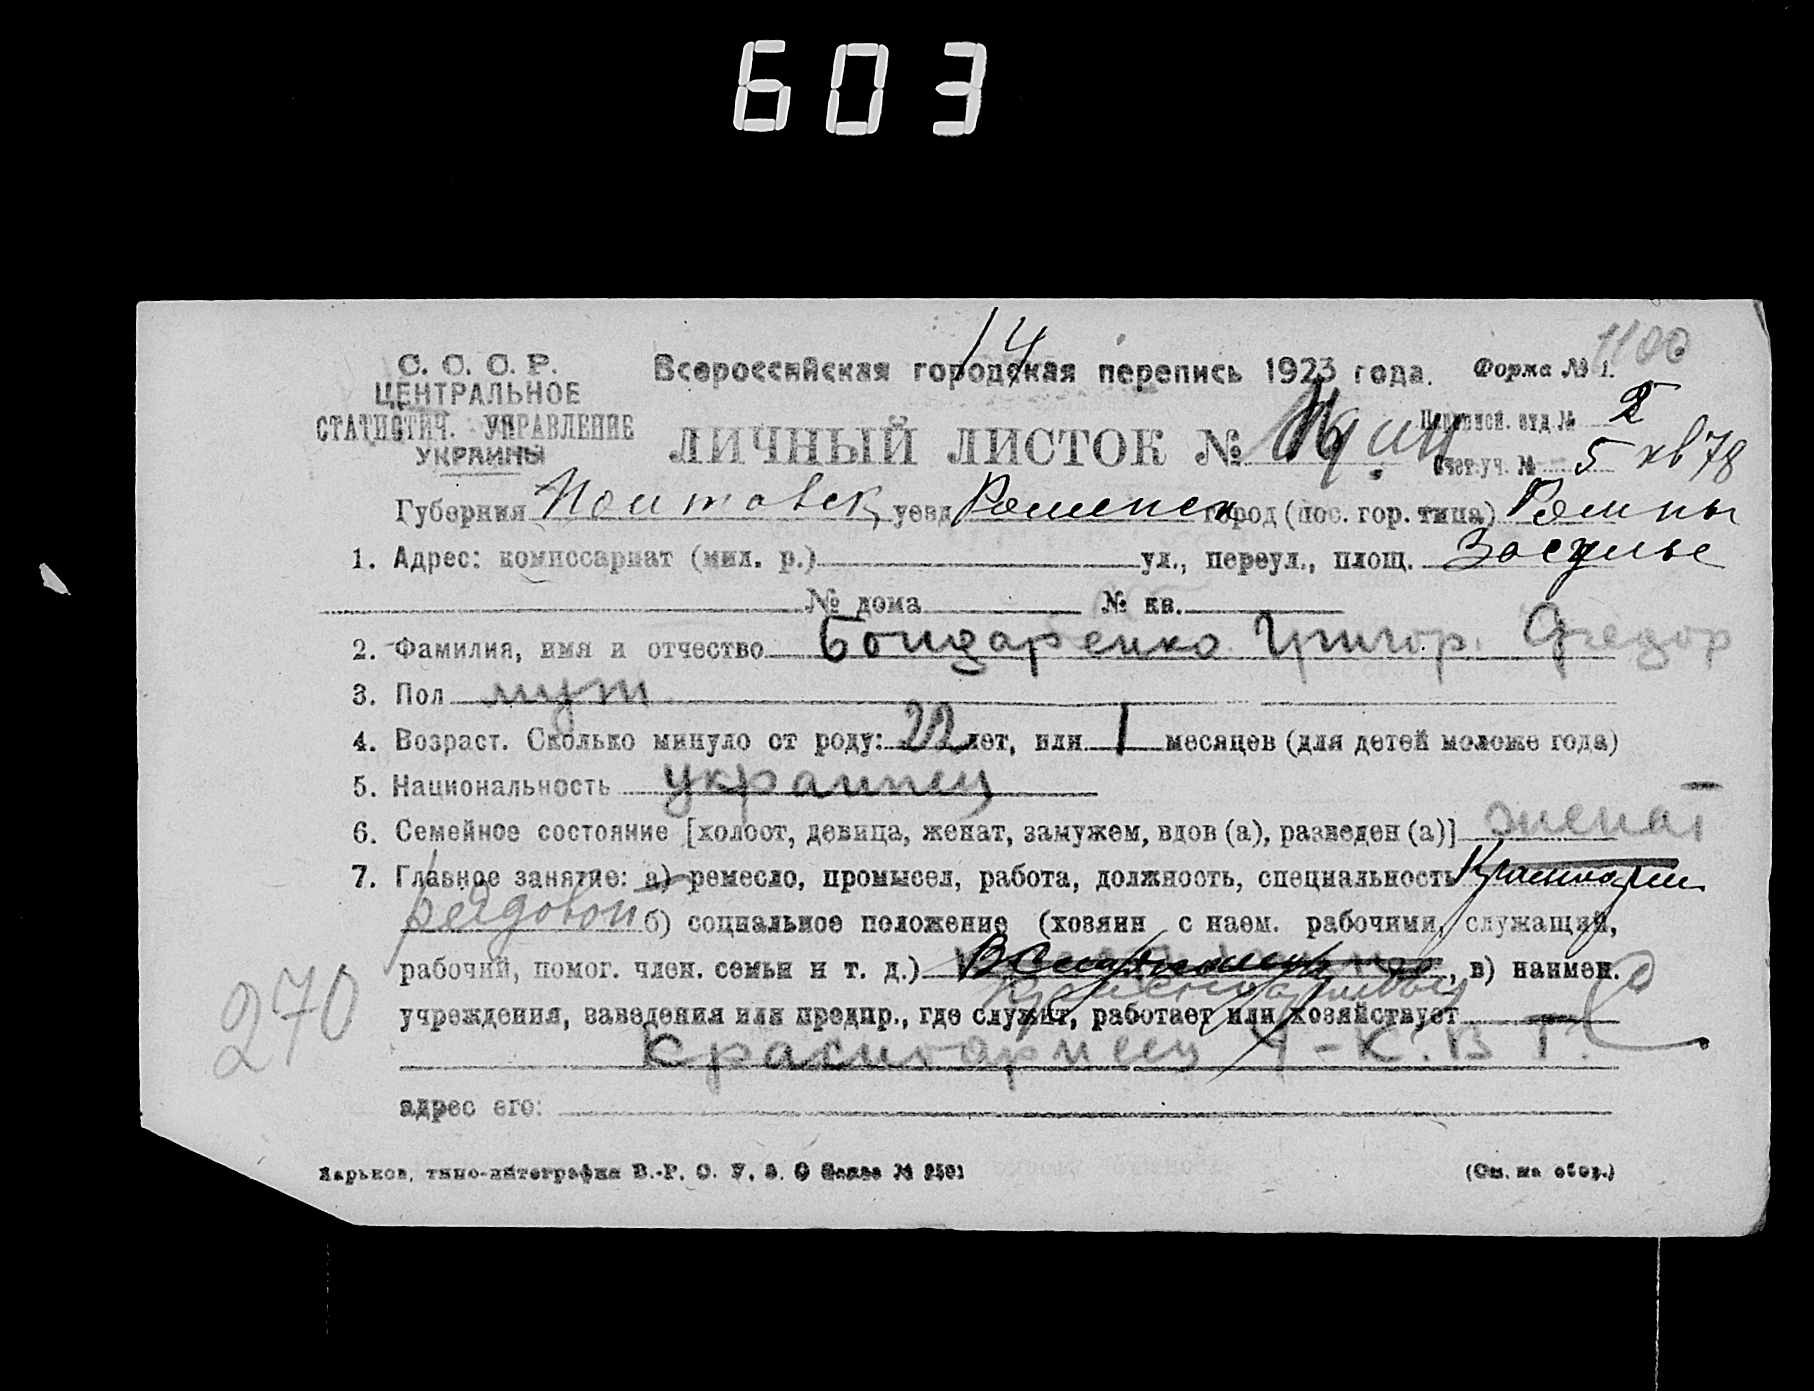 603
1100
14
С. С. С. Р.
ЦЕНТРАЛЬНОЕ
СТАТИСТИЧ. УПРАВЛЕНИЕ
УКРАИНЫ
Всероссийская городская перепись 1923 года. Форма № 1.
ЛИЧНЫЙ ЛИСТОК №
отд №
Счет.уч. № 5 кв 78
Губерния Полтавск уезд Роменск город (пос. гор. типа) Ромны
1. Адрес: комиссариат (мил. р.) ул., переул., площ. Засулье
№ дома № кв.
2. Фамилия, имя и отчество Бондаренко Григор. Федор
3. Пол муж
4. Возраст. Сколько минуло от роду: 22 лет, или 1 месяцев (для детей моложе года)
5. Национальность украинец
6. Семейное состояние [холост, девица, женат, замужем, вдов (а), разведен (а)] женат
7. Главное занятие: а) ремесло, промысел, работа, должность, специальность Красноарм
рядовой б) социальное положение (хозяин с наем. рабочими, служащий,
рабочий, помог. член. семьи и т. д.) , в) наимен.
учреждения, заведения или предпр., где служит, работает или хозяйствует
270
Красноармеец
адрес его:
Харьков, типо-литография В.-Р. О. У. З. О Заказ № (См. на обор.)